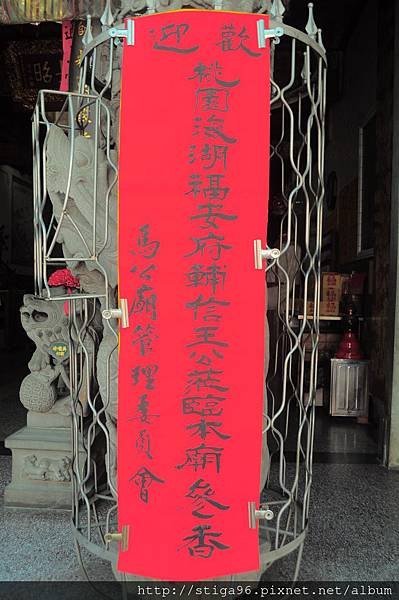 歡迎
桃園海湖福安府輔信王公蒞臨本廟參香
馬公廟管理委員會
http://stiga96.pixnet.net/album